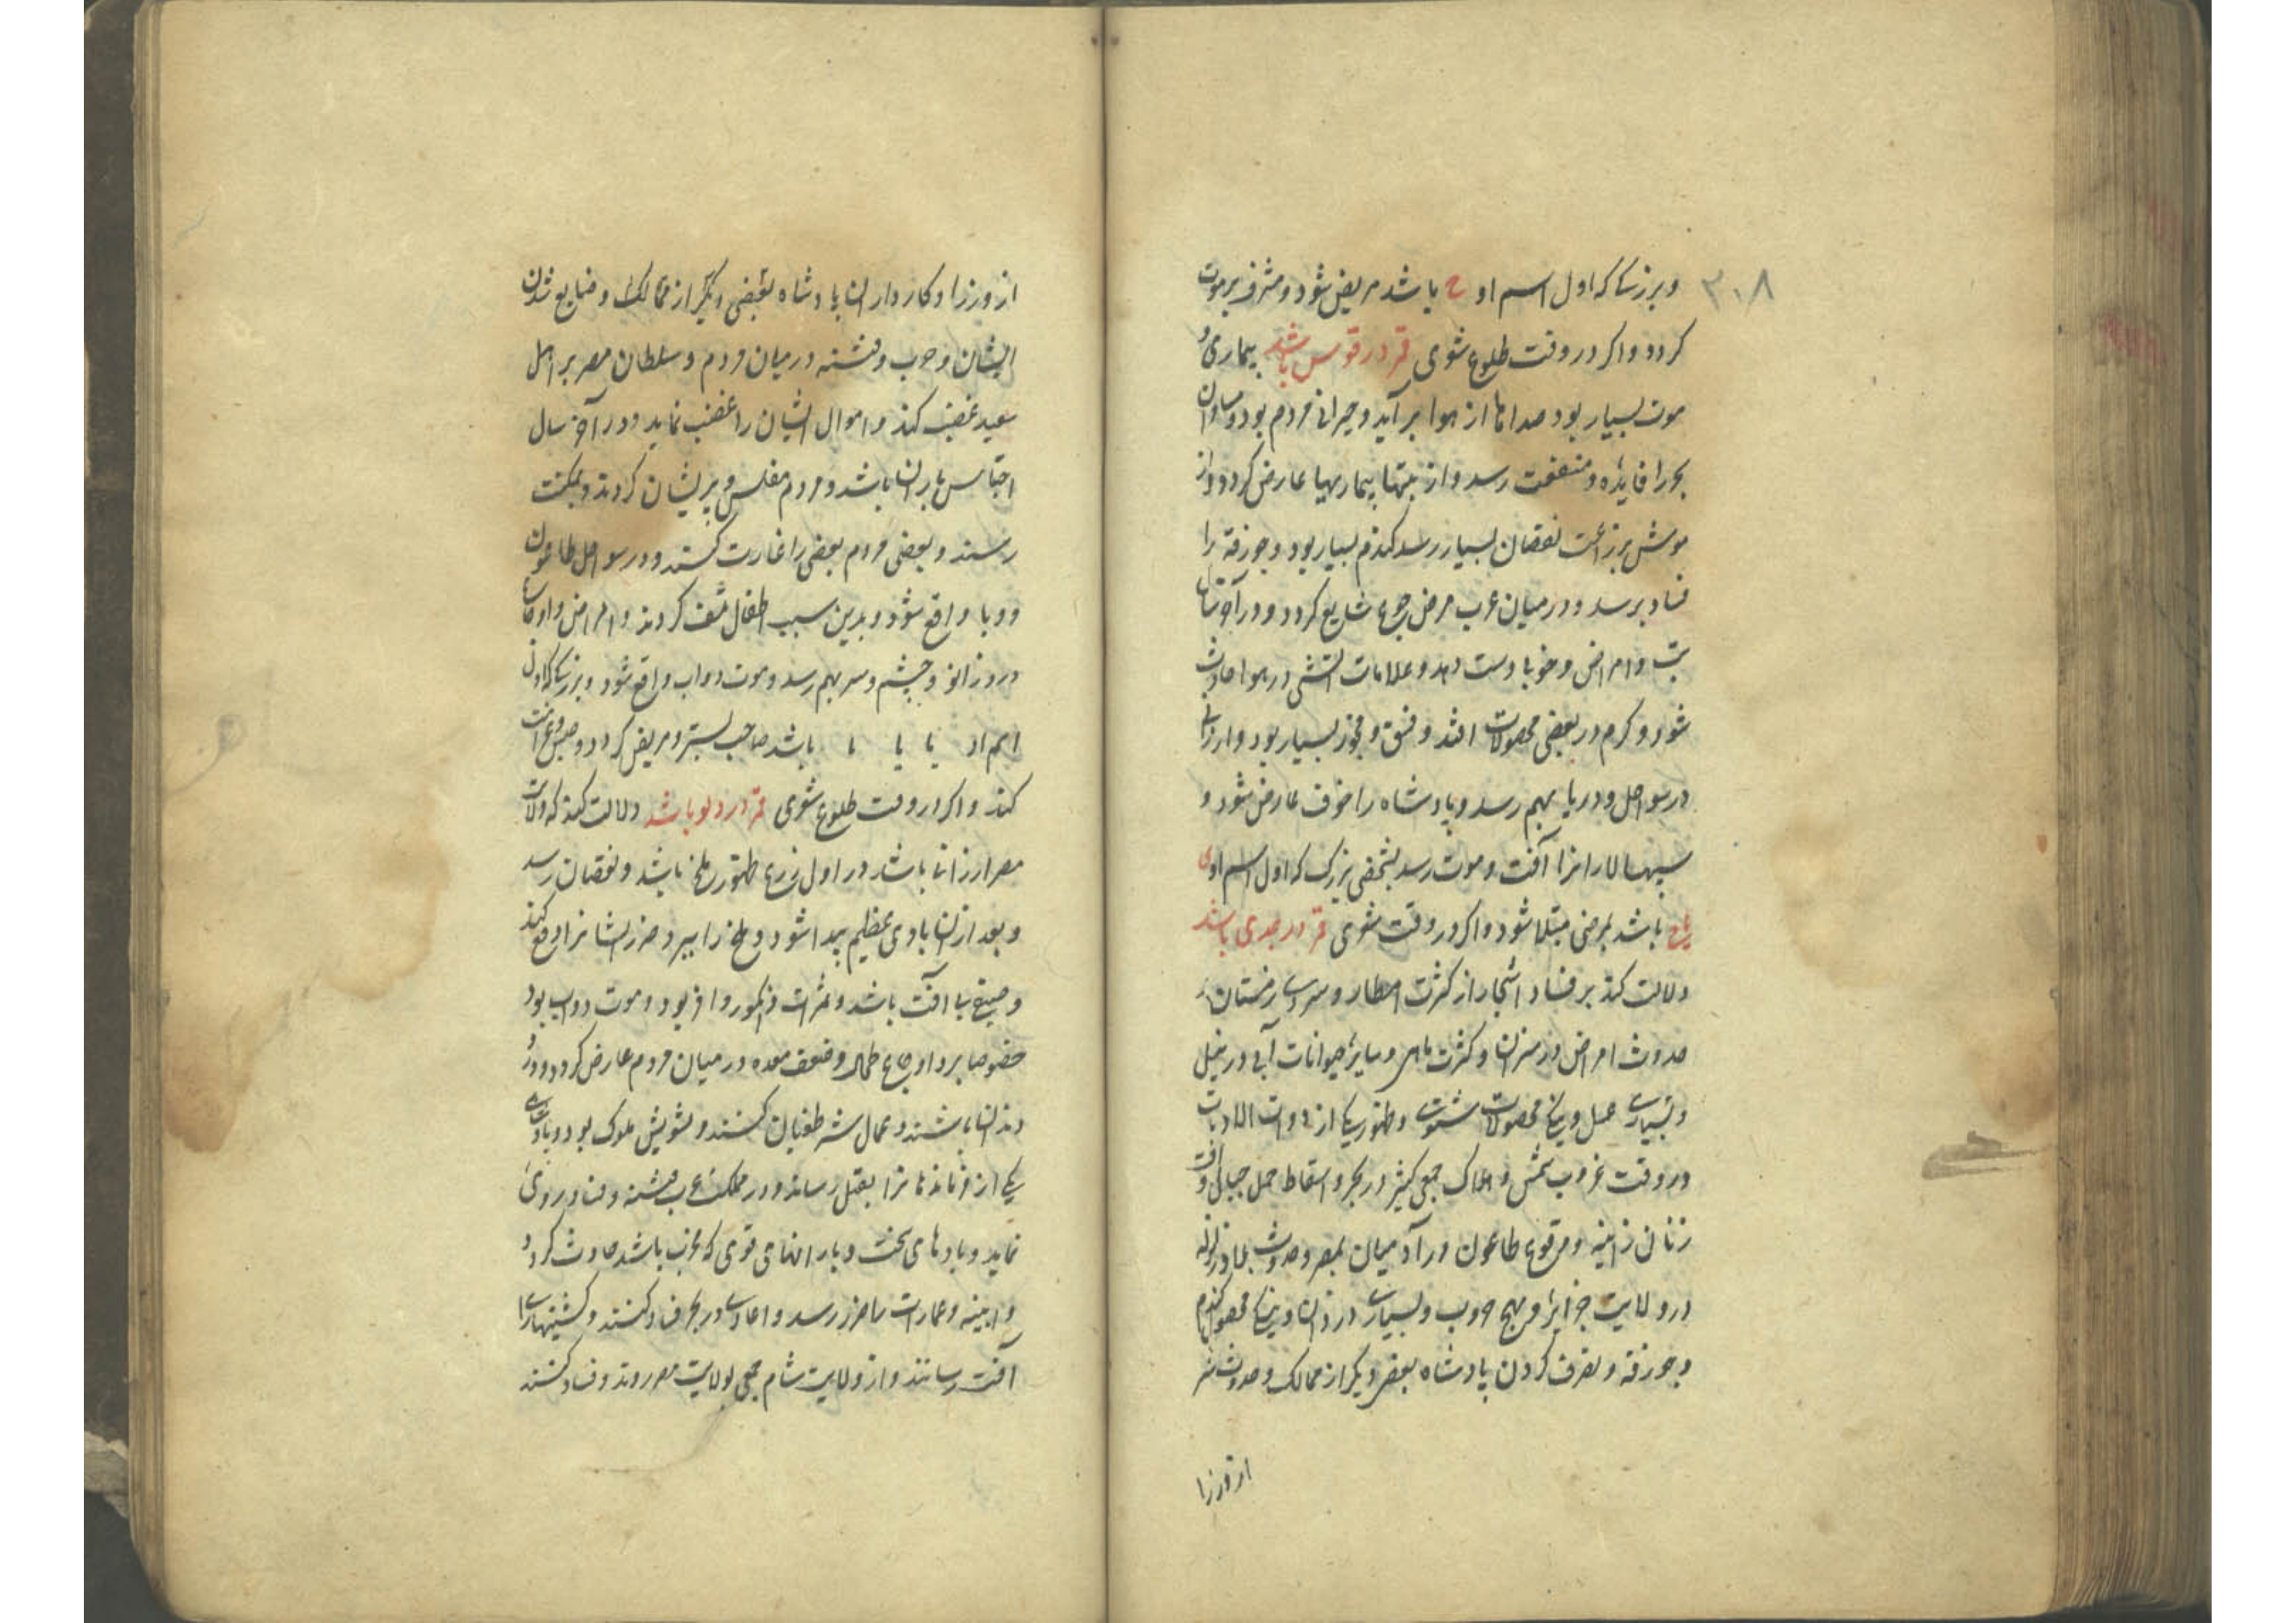 ۳۰۸
وبرزکیکه اول اسم او ح باشد مریض شود و مشرف بر موت
کردد واکر در وقت طلوع شعری قمر در قوس باشد بیماری و
موت بسیار بود صداها از هوا برآید و حیرانی مردم بود و مسافران
بحر را فایده و منفعت رسد و از تبها بیماریها عارض کردد و از
موش بزراعت نقصان بسیار رسد کندم بسیار بود و جو زقه را
فساد برسد و در میان عرب مرض جوع شایع کردد و در آخر سال
تب و امراض و خوبا دست دهد و علامات آتشی در هوا حادث
شود و کرم در بعضی محصولات افتد و فسق و فجور بسیار بود و ارزانی
در سواحل و دریا بهم رسد و پادشاه را خوف عارض شود و
سپهسالار انرا آفت و موت رسد شخصی بزرک که اول اسم او ی
یا ح باشد بمرض مبتلا شود و اکر در وقت شعری قمر در جدی باشد
دلالت کند بر فساد اشجار از کثرت امطار و سردی زمستان
حدوث امراض در سرانا و کثرت ماهی و سایر حیوانات آبی در نیل
و بسیاری عسل و نیکی محصولات شتوی و ظهور یکی از ذوات الاذناب
در وقت غروب شمس و هلاک جمعی کثیر در بحر و اسقاط حمل حبالی و آفت
زنان زانیه و وقوع طاعون در آدمیان بمصر و حدوث بلا و زلزله
در ولایت جزایر و مهیج حروب و بسیاری دزدان و نیکی محصول کندم
و جو زقه و تصرف کردن پادشاه بعضی دیکر از ممالک و حدوث شر
از وزرا
از وزرا و کارداران پادشاه بعضی دیکر از ممالک و ضایع شدن
ایشان و حرب و فتنه در میان مردم و سلطان مصر بر اهل
سعید غضب کند و اموال ایشان را غصب نماید و در آخر سال
احتباس باران باشد و مردم مفلس و پریشان کردند و بمکنت
رسند و بعضی مردم بعضی را غارت کنند و در سواحل طاعون
و وبا واقع شود و بدین سبب اطفال تلف کردند و امراض و اوجاع
درد زانو و چشم و سر بهم رسد و موت دواب واقع شود و بزرکیکه اول
اسم او یا یا با باشد صاحب بستر و مریض کردد و
کند واکر در وقت طلوع شعری قمر در دلو باشد دلالت کند که ولایت
مصر ارزانی باشد در اول زرع ظهور ملخ باشد و نقصان رسد
و بعد از آن بادی عظیم پیدا شود و ملخ را ببرد و ضرر ایشانرا دفع کند
و صیفی بی آفت باشد و ثمرات و انکور وافر بود و موت دواب بود
خصوصا بر د اوجاع طحال و ضعف معده در میان مردم عارض کردد و درد
دندان باشند و عمال شر طغیان کنند و تشویش ملوک بود و پادشاهی
یکی از فرمانده‌انرا بقتل رساند و در مملکت عرب فتنه و فساد روی
نماید و بادهای سخت و بارانهای قوی که مخرب باشد حادث کردد
و ابنیه و عمارات را ضرر رسد و اعادی در بحر فساد کنند و کشتیها را
آفت رسانند و از ولایت شام جمعی بولایت مصر روند و فساد کنند